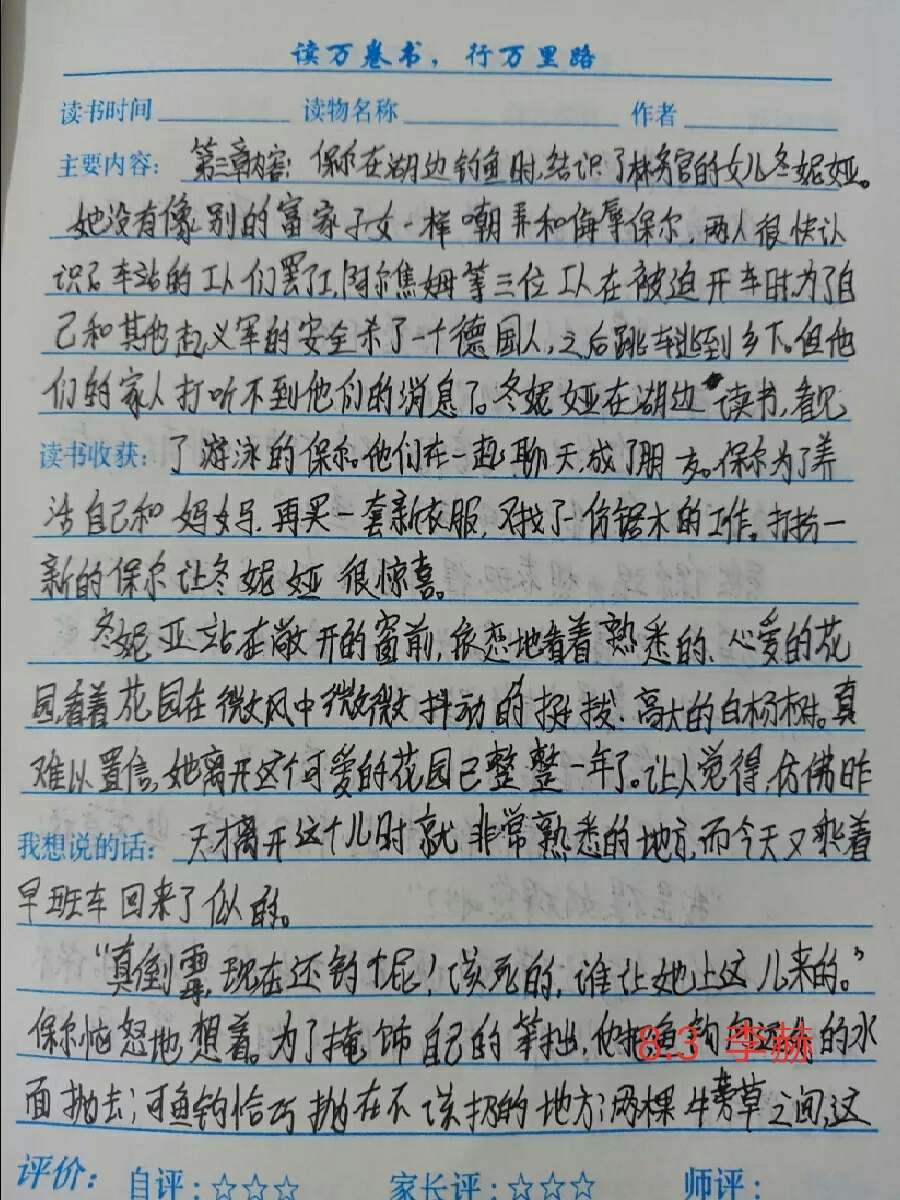 读万卷书，行万里路
读书时间 读物名称 作者
主要内容：第三章内容：保尔在湖边钓鱼时，结识了林务官的女儿冬妮娅。
她没有像别的富家子女一样嘲弄和侮辱保尔，两人很快认
识了车站的工人们罢工，阿尔焦姆等三位工人在被迫开车时，为了自
己和其他起义军的安全杀了一个德国人，之后跳车逃到乡下。但他
们的家人打听不到他们的消息了。冬妮娅在湖边读书，看见
读书收获：了游泳的保尔。他们在一起聊天，成了朋友。保尔为了养
活自己和妈妈，再买一套新衣服，又找了一份锯木的工作。打扮一
新的保尔让冬妮娅很惊喜。
冬妮亚站在敞开的窗前，依恋地看着熟悉的、心爱的花
园，看着花园在微风中微微抖动的挺拔、高大的白杨树。真
难以置信，她离开这个可爱的花园已整整一年了。让人觉得，仿佛昨
我想说的话：天才离开这个儿时就非常熟悉的地方，而今天又乘着
早班车回来了似的。
“真倒霉，现在还钓个屁！该死的，谁让她上这儿来的。”
保尔恼怒地想着。为了掩饰自己的笨拙，他把鱼钩的水
面抛去；可鱼钩恰巧抛在不该扔的地方：两棵牛蒡草之间，这
8.3 李赫
评价： 自评：☆☆☆ 家长评：☆☆☆ 师评：